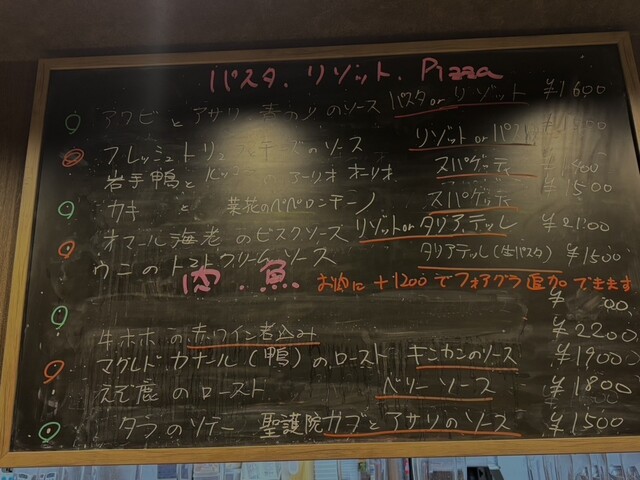 パスタ、リゾット、Pizza
アワビとアサリ 青のりのソース パスタ or リゾット ¥1600
フレッシュトリュフ のソース リゾット or パスタ
岩手鴨と アーリオオーリオ スパゲッティ
カキと 菜花のペペロンチーノ スパゲッティ ¥1500
オマール海老のビスクソース リゾット or タリアテッレ ¥2100
ウニのトマトクリームソース タリアテッレ(生パスタ) ¥1500
肉・魚 お肉に +1200でフォアグラ追加できます
¥
牛ホホの赤ワイン煮込み ¥2200
マグレドカナール(鴨)のロースト キンカンのソース ¥1900
えぞ鹿のロースト ベリーソース ¥1800
タラのソテー 聖護院カブとアサリのソース ¥1500